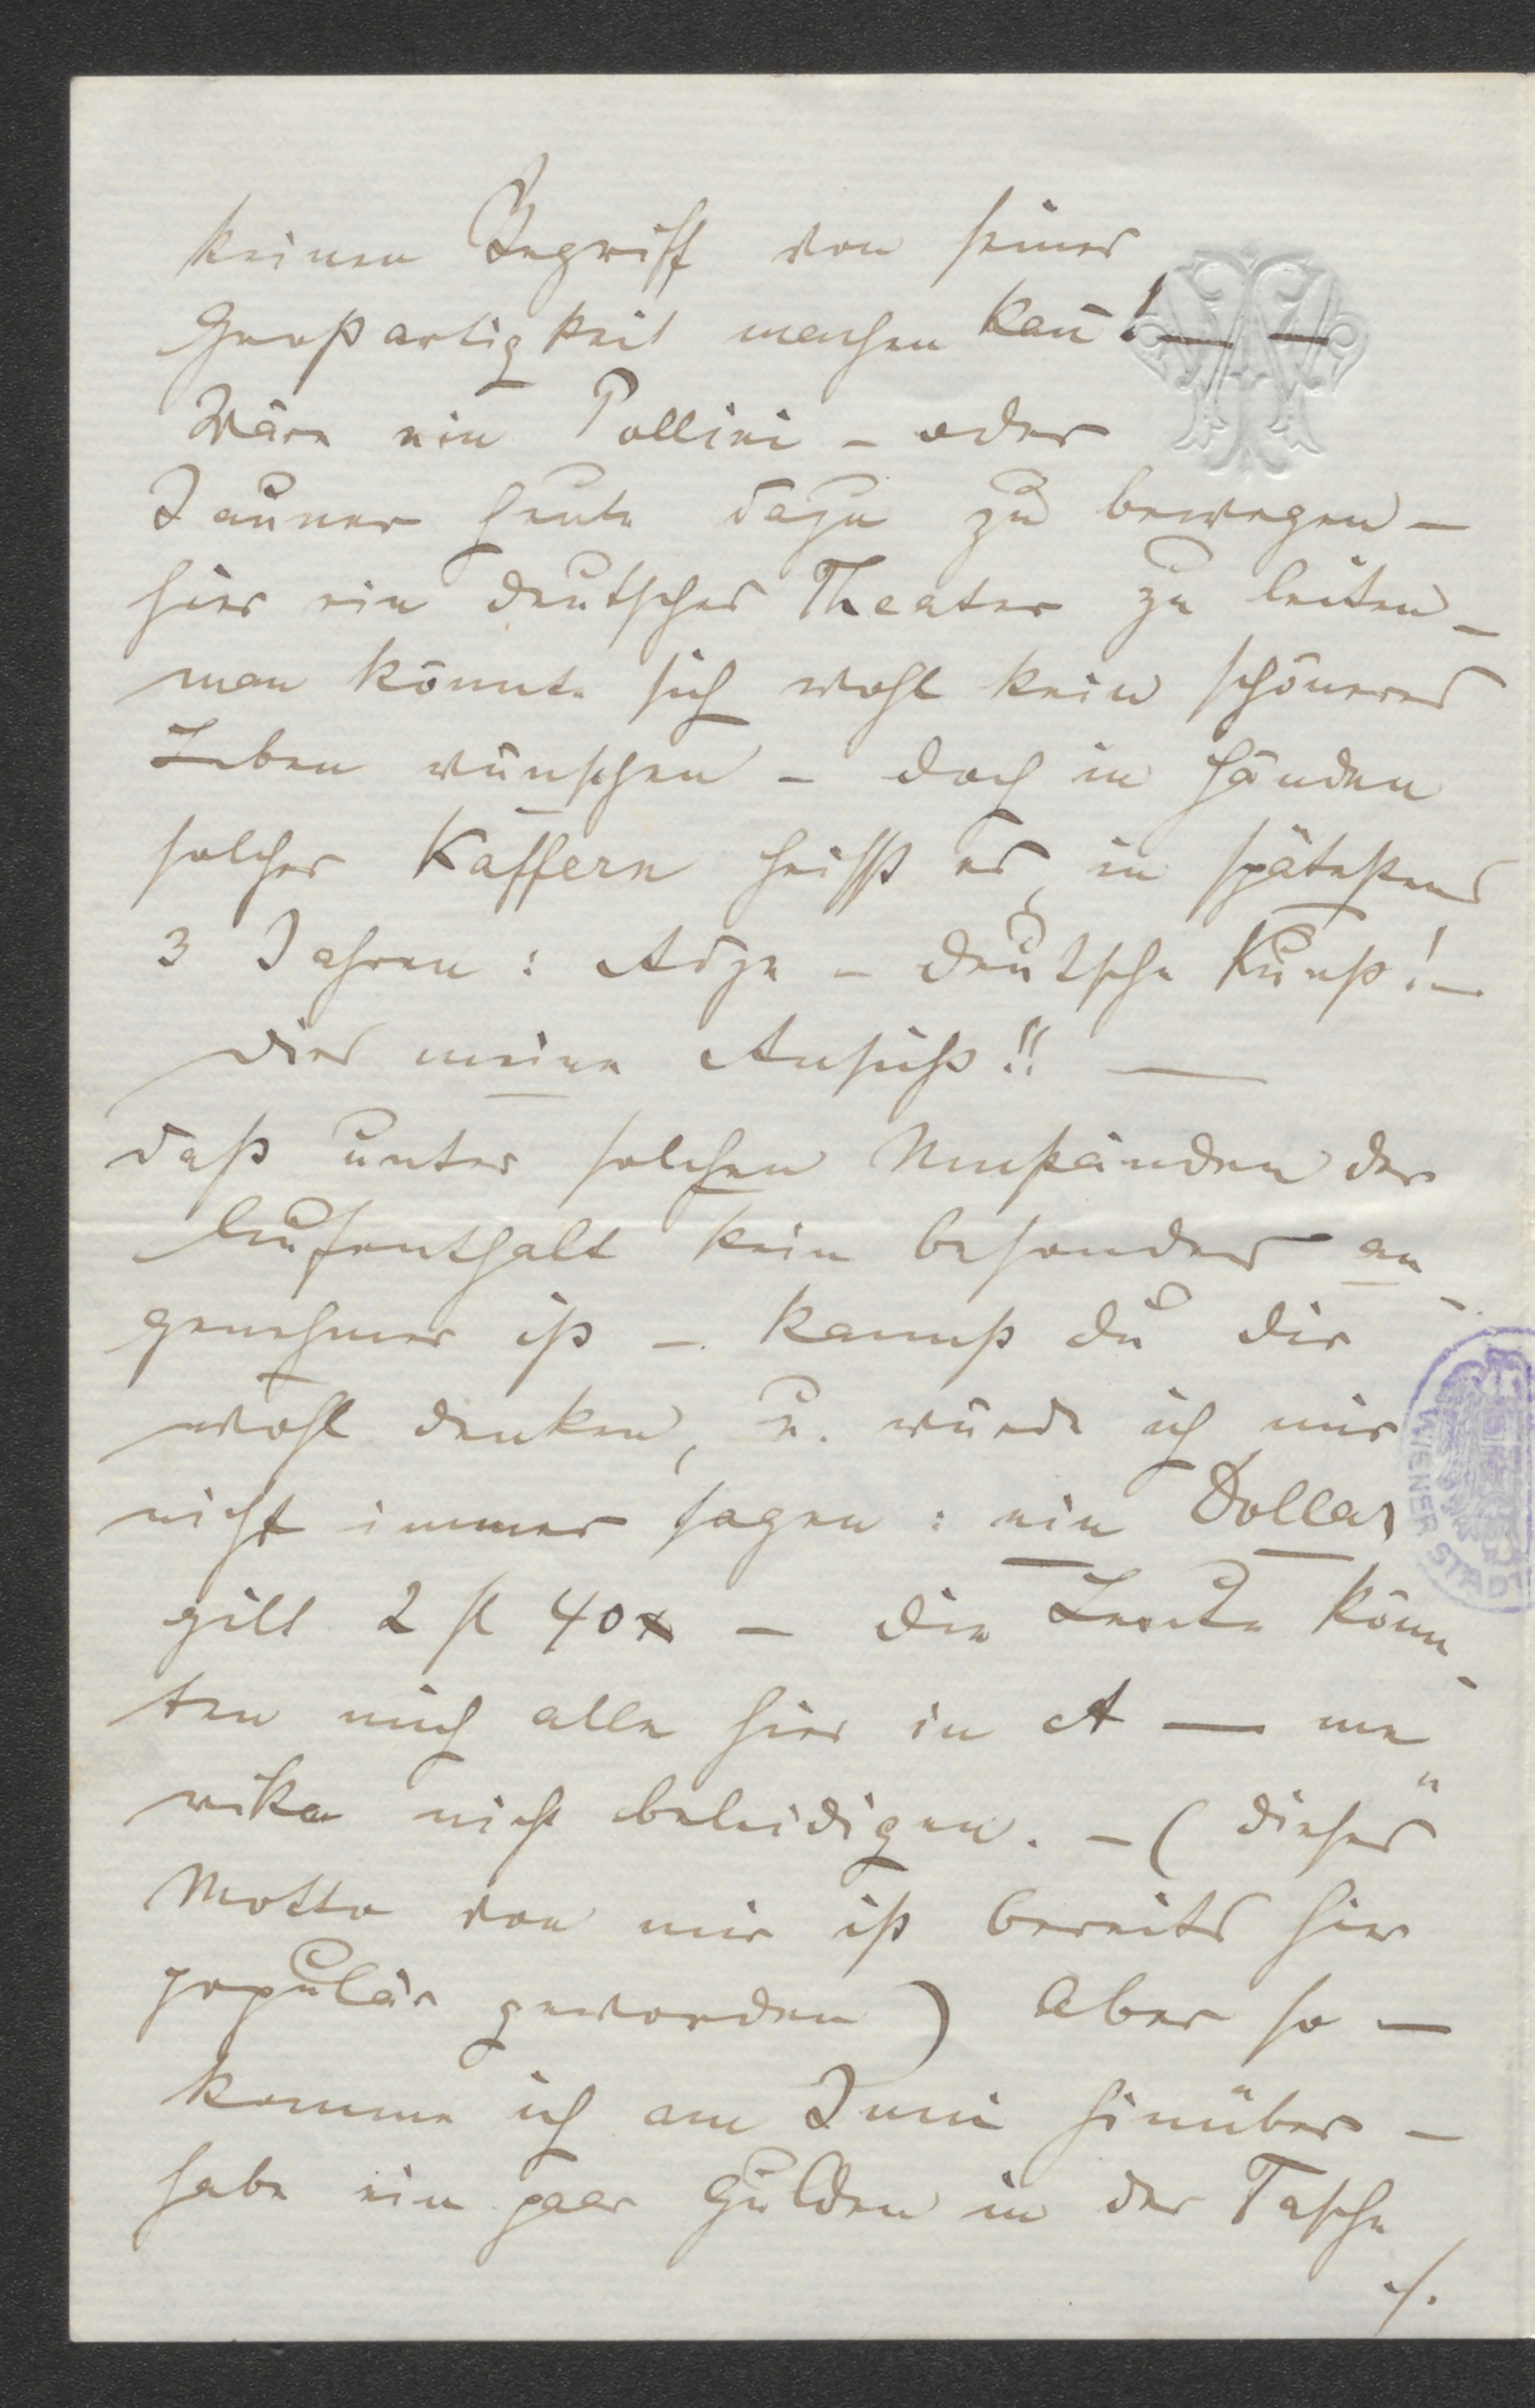 keinen Begriff von seiner
Großartigkeit machen kan̄! — —
Wäre ein Pollini – oder
Jauner heute dazu zu bewegen –
hier ein deutsches Theater zu leiten –
man könnte sich wohl kein schöneres
Leben wünschen – doch in Händen
solcher Kaffern heißt es, in spätestens
3 Jahren: Adje – deutsche Kunst! –
dies meine Ansicht!! —
daß unter solchen Umständen der
Aufenthalt kein besonders an-
genehmer ist – kannst du dir
wohl denken, u. würde ich mir
nicht immer sagen: ein Dollar
gilt 2 fl 40x – die Leute könn-
ten mich alle hier in A — me
rika nicht beleidigen. – (dieses
Motto von mir ist bereits hier
populär geworden) Aber so –
komme ich am Juni hinüber –
habe ein paar Gulden in der Tasche
./.
WIENER STADT